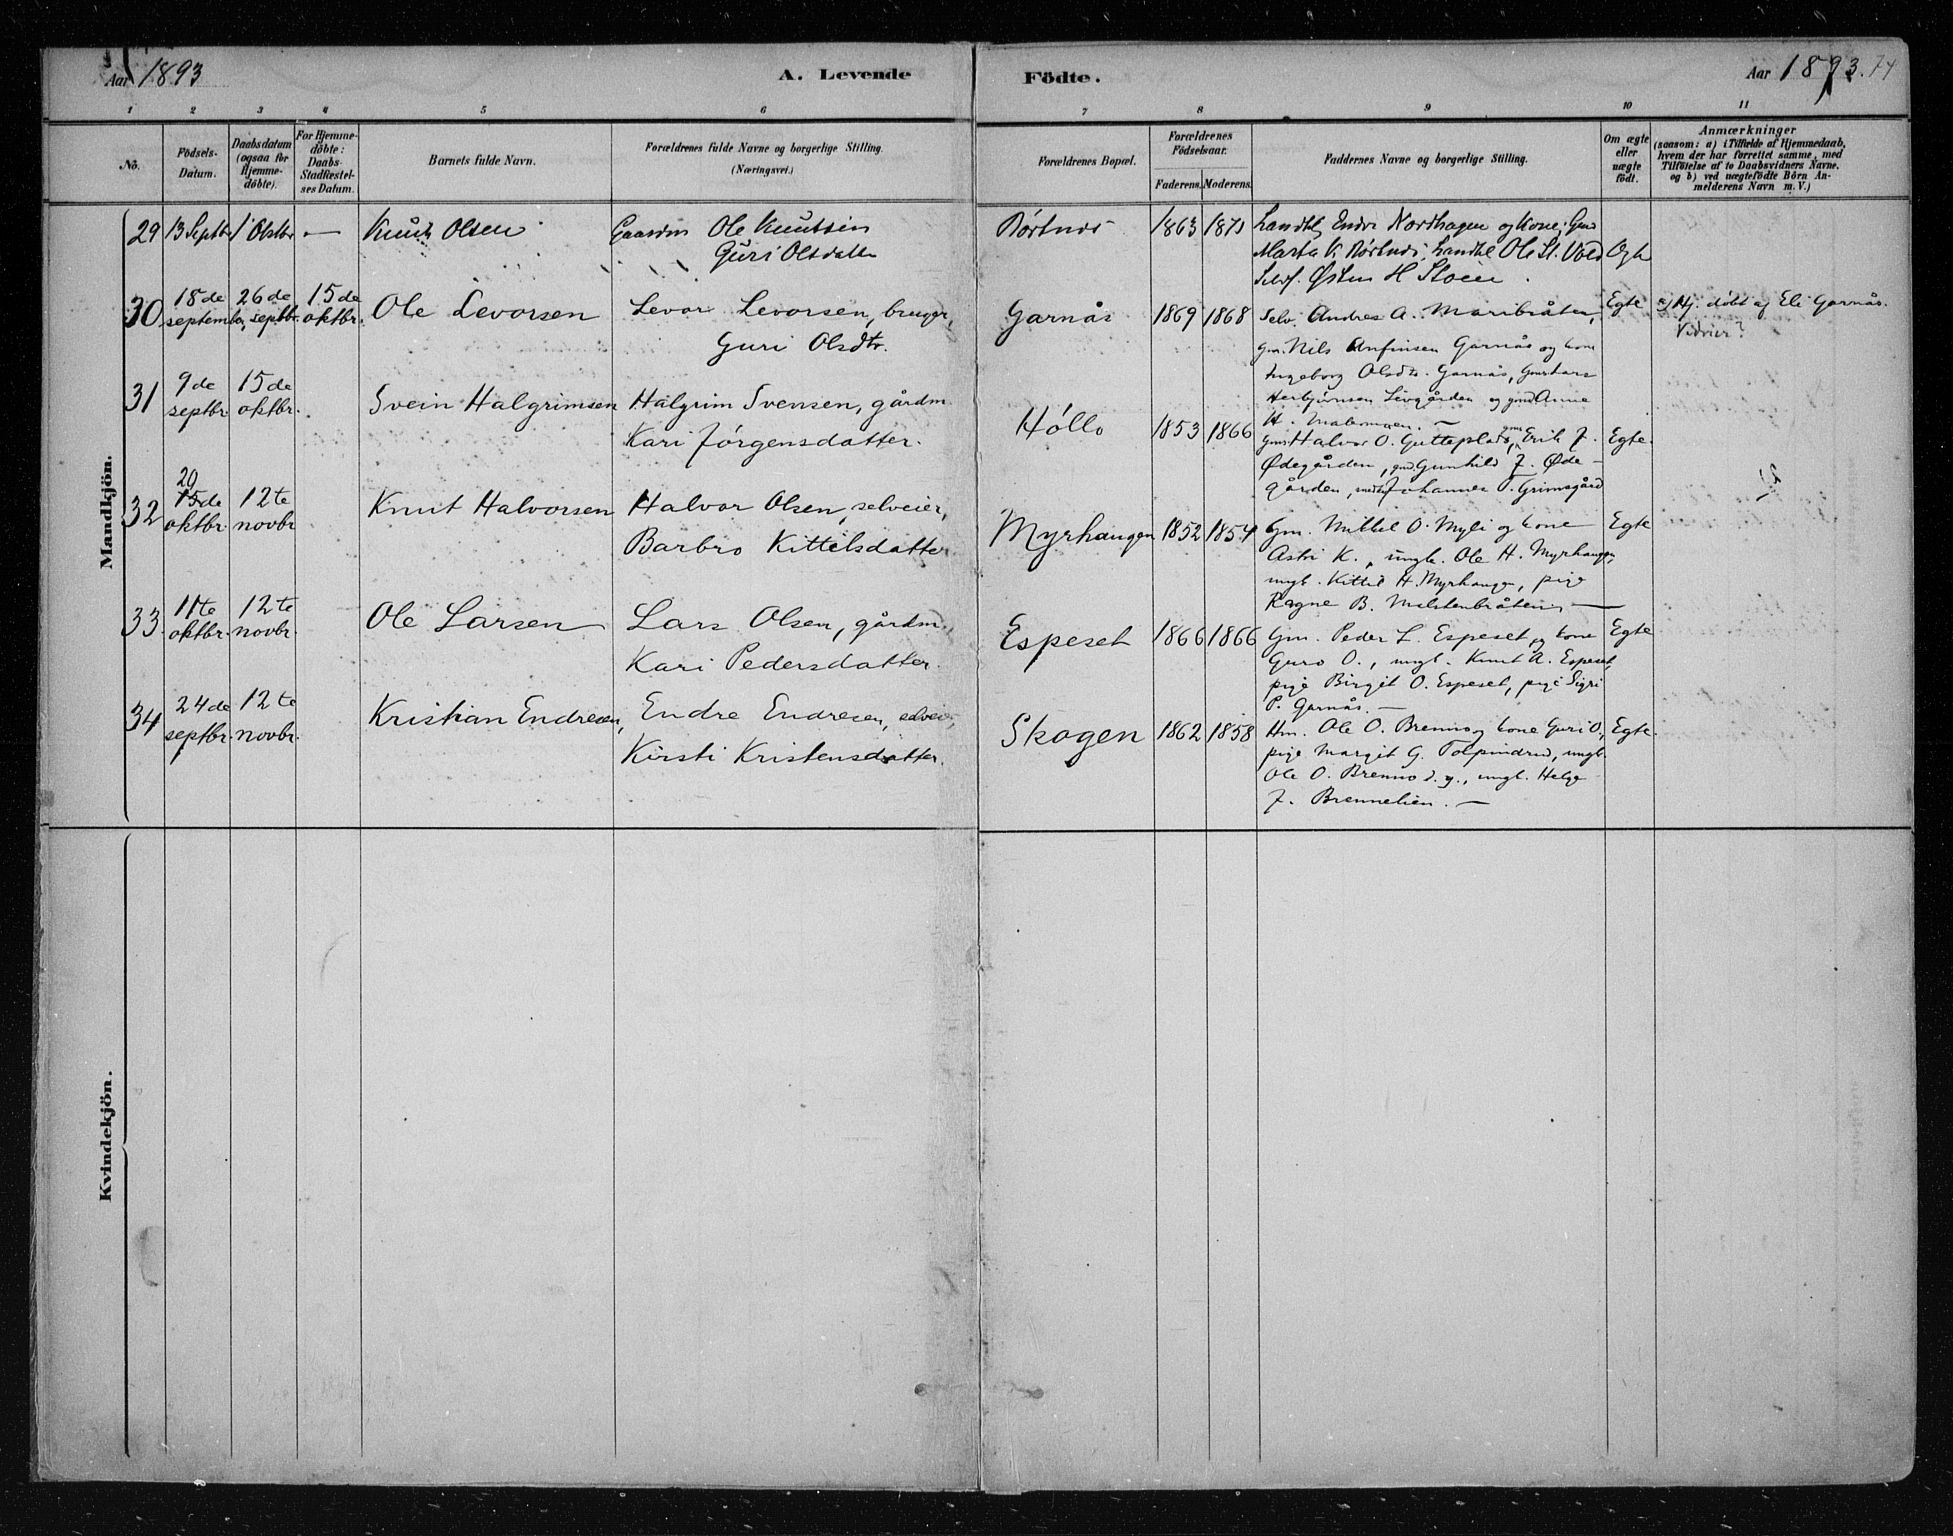 Aar 1893
A. Levende
Födte.
Aar 1893. 74
1 2 3 4 5 6 7 8 9 10 11
No.
Födsels-
Datum.
Daabsdatum
(ogsaa for
Hjemme-
döbte).
For Hjemme-
döbte:
Daabs-
Stadfæstel-
ses Datum.
Barnets fulde Navn.
Forældrenes fulde Navne og borgerlige Stilling
(Næringsvei.)
Forældrenes Bopæl.
Forældrenes
Födselsaar.
Faderens. Moderens.
Faddernes Navne og borgerlige Stilling.
Om ægte
eller
uægte
født.
Anmærkninger
(saasom: a) i Tilfælde af Hjemmedaab,
hvem der har forrettet samme, med
Tilföielse af to Daabsvidners Navne,
og b) ved uægtefödte Börn An-
melderens Navn m. V.)
Mandkjön.
29 13 Septbr 1 Oktbr — Knut Olsen Ole Knutsen
Guri Olsdatter
Rørtnes 1863 1871
Endre Nordhagen og Kone;
Marta K Rørtnes, Ole St. Vold
Østen H Stoen.
30 18de
septembr. 26de
septbr. 15de
oktbr. Ole Levorsen Levor Levorsen, bruger,
Guri Olsdtr.
Garnås 1869 1868 Selv. Andres A. Maribråten,
gm. Nils Anfinsen Garnås og kone
Ingeborg Olsdtr. Garnås,
Herbjørnsen Livgården og Anne
H.
Egte a) Hj. døbt af Eli Garnås.
31 9de
septbr. 15de
oktbr. Svein Halgrimsen Halgrim Svensen, gårdm.
Kari Jørgensdatter.
Hóllo 1853 1866 Halvor O. Gutteplads, Erik J.
Ødegården, Gunhild J. Øde-
gården, Johannes O. Grimsgård
Egte.
32 20
15de
oktbr. 12te
novbr. Knut Halvorsen Halvor Olsen, selveier,
Barbro Kittelsdatter
Myrhaugen 1852 1854 Gm. Mikkel O. Myli og kone
Astri K., ungk. Ole H. Myrhaugen,
ungk. Kittil H. Myrhaugen, pige
Ragne B.
Egte
33. 11te
oktbr. 12te
novbr. Ole Larsen Lars Olsen, gårdm.,
Kari Pedersdatter.
Espeset 1866 1866 Gm. Peder L. Espeset og kone
Guro O., ungk. Knut A. Espeset,
pige Birgit O. Espeset, pige Sigri
P. Garnås. —
Egte
34 24de
septbr. 12te
novbr. Kristian Endresen, Endre Endresen, selveier,
Kirsti Kristensdatter.
Skogen 1862 1858 Hm. Ole O. Brenno og kone Guri O.,
pige Margit G. Tolpinrud, ungk.
Ole O. Brenno d. y., ungk. Helge
J. Brennelien. —
Egte.
Kvindekjön.